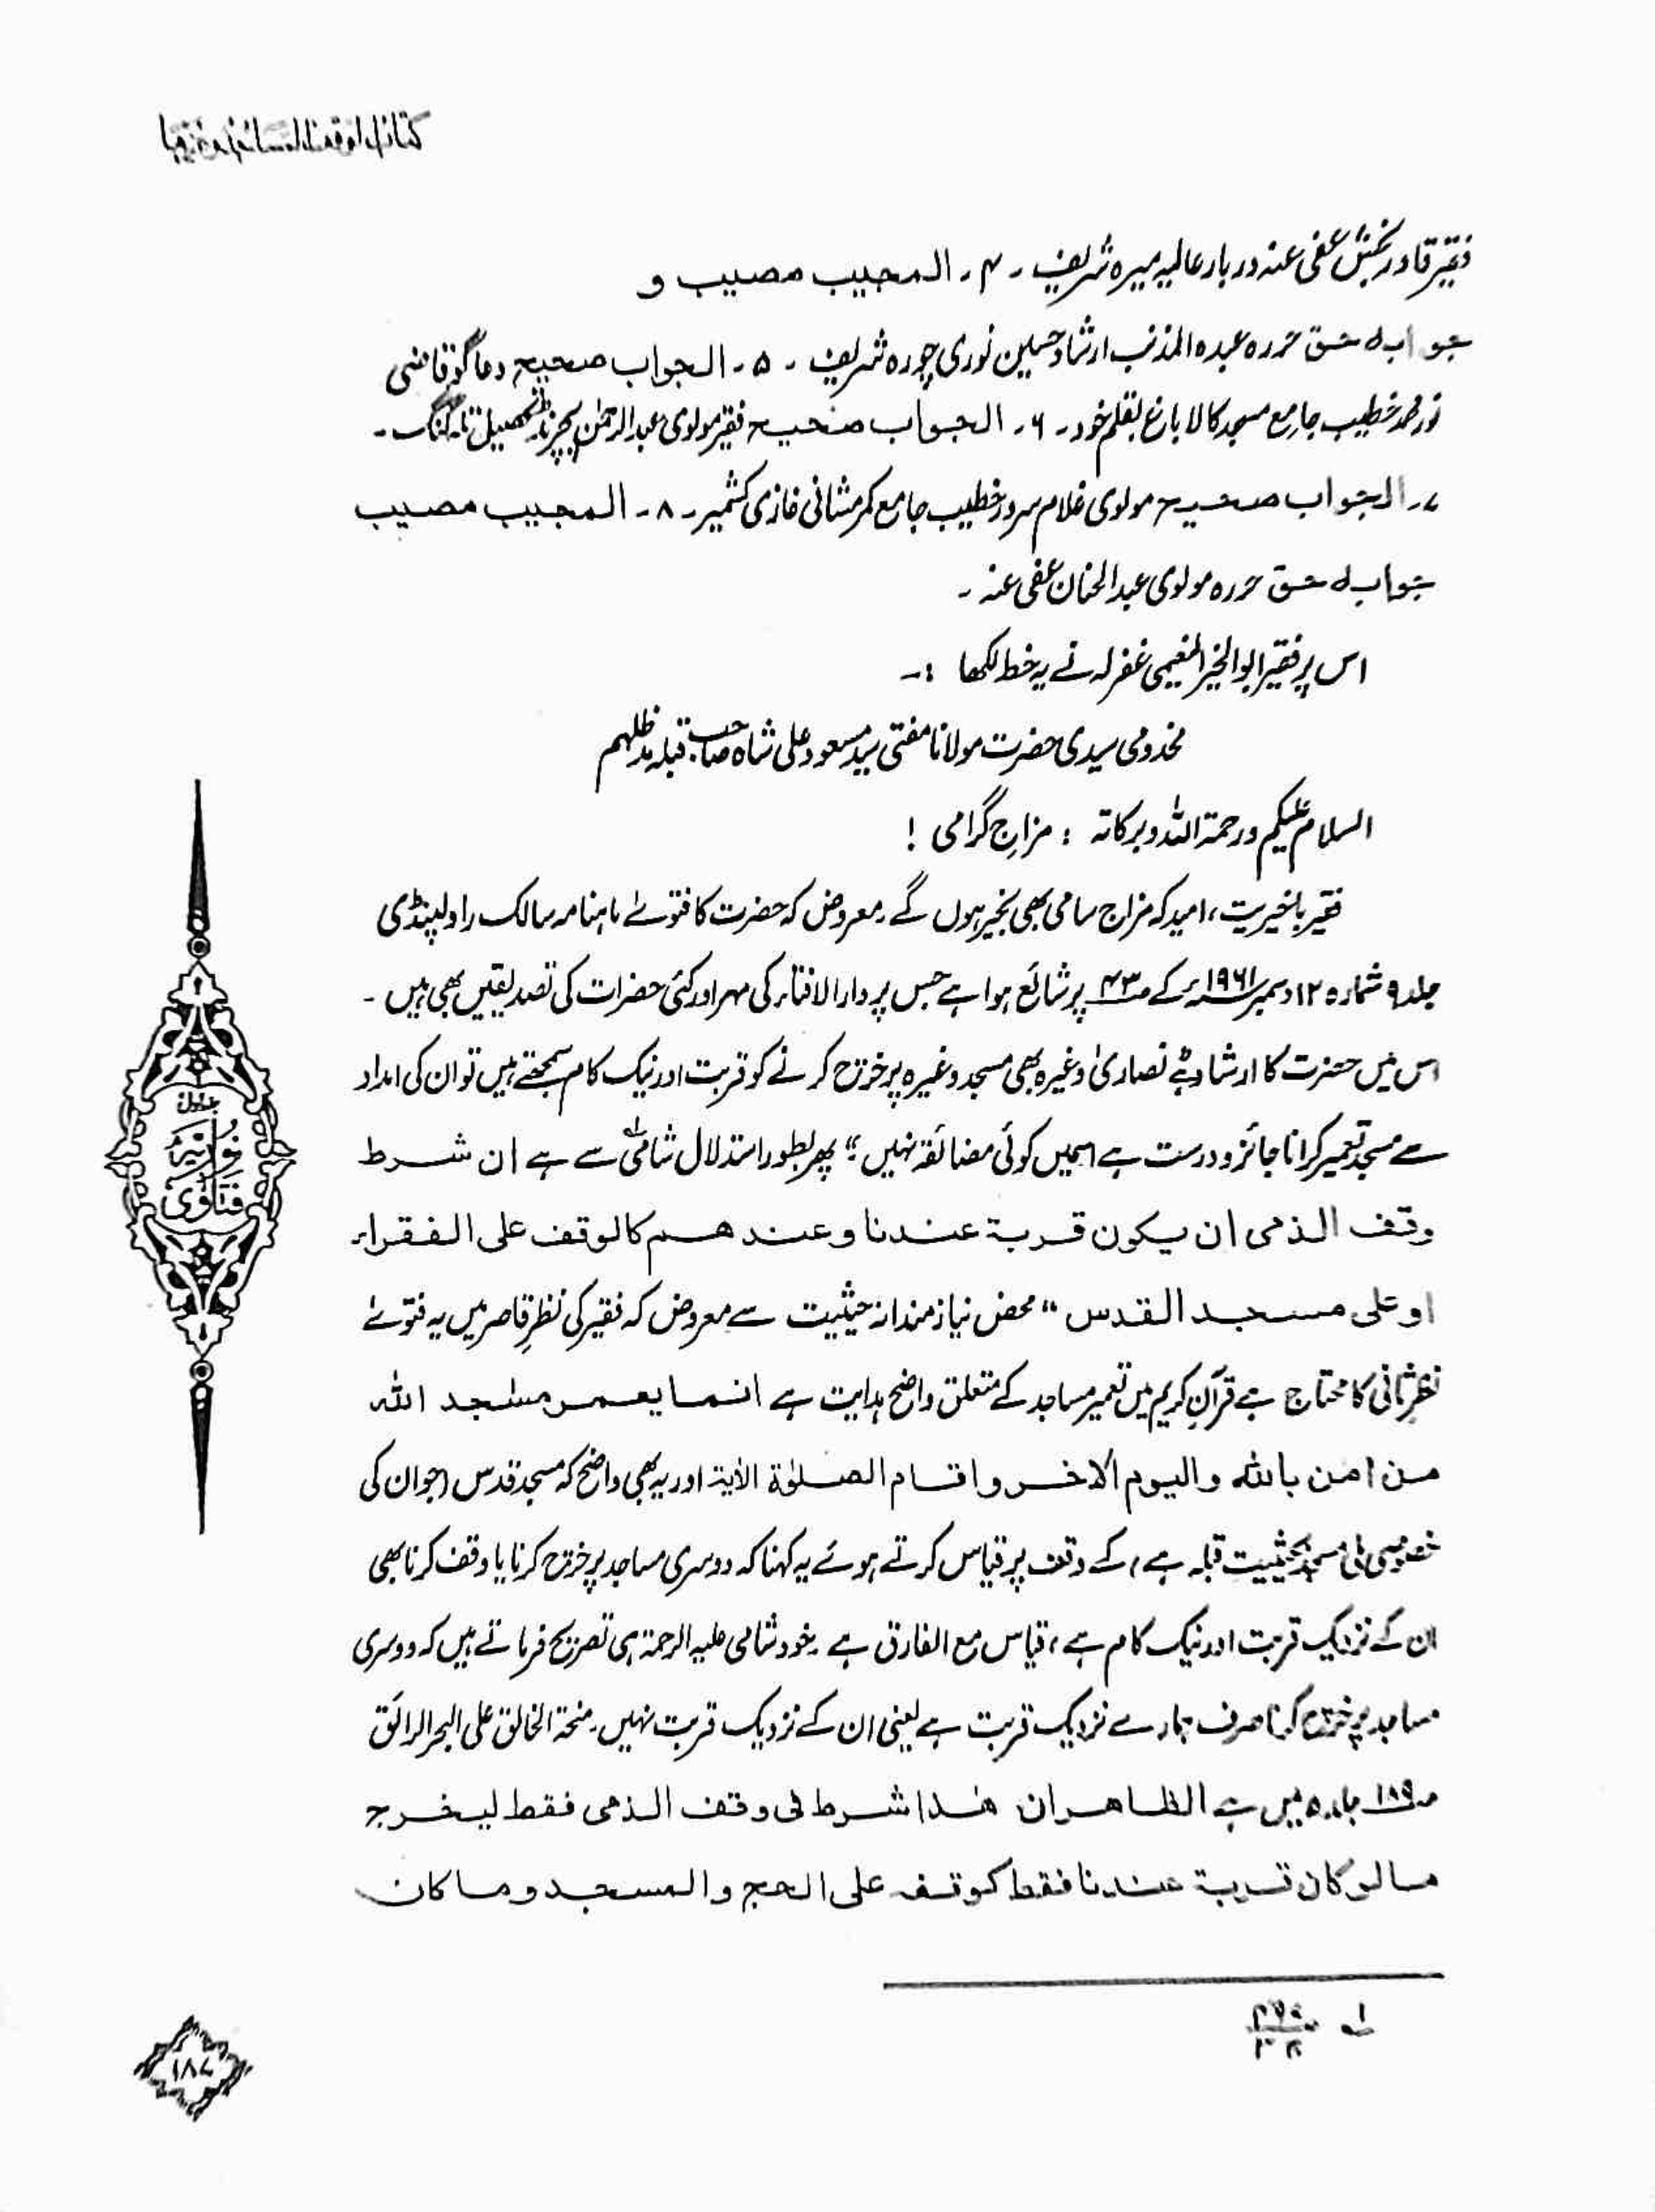 فقیر قادر بخش عفی عنہ دربار عالیہ میرہ شریف ۔ ۴ ۔ المجیب مصیب و
جوابہ حق حررہ عبدہ المذنب ارشاد حسین نوری چورہ شریف ۔ ۵ ۔ الجواب صحیح دعاگو قاضی
نور محمد خطیب جامع مسجد کالا باغ بقلم خود ۔ ۶ ۔ الجواب صحیح فقیر مولوی عبدالرحمٰن تحصیل تلہ گنگ ۔
۷ ۔ الجواب صحیح مولوی غلام سرور خطیب جامع کمر مشانی غازی کشمیر ۔ ۸ ۔ المجیب مصیب
جوابہ حق حررہ مولوی عبدالحنان عفی عنہ ۔
اس پر فقیر ابوالخیر النعیمی غفرلہ نے یہ خط لکھا :۔
مخدومی سیدی حضرت مولانا مفتی سید مسعود علی شاہ صاحب قبلہ مدظلہم
السلام علیکم ورحمۃ اللہ وبرکاتہ : مزاجِ گرامی !
فقیر باخیریت، امید کہ مزاج سامی بھی بخیر ہوں گے ۔ معروض کہ حضرت کا فتوےٰ ماہنامہ سالک راولپنڈی
جلد ۹ شمارہ ۱۲ دسمبر ۱۹۶۱ء کے ص۴۳ پر شائع ہوا ہے جس پر دارالافتاء کی مہر اور کئی حضرات کی تصدیقیں بھی ہیں ۔
اس میں حضرت کا ارشاد ہے نصاریٰ وغیرہ بھی مسجد وغیرہ پر خرچ کرنے کو قربت اور نیک کام سمجھتے ہیں تو ان کی امداد
سے مسجد تعمیر کرانا جائز و درست ہے اسمیں کوئی مضائقہ نہیں :“ پھر بطور استدلال شامی لہ سے ہے ان شرط
وقف الذمی ان یکون قربۃ عندنا وعندھم کالوقف علی الفقراء
او علی مسجد القدس “ محض نیازمندانہ حیثیت سے معروض کہ فقیر کی نظرِ قاصر میں یہ فتوےٰ
نظرِثانی کا محتاج ہے قرآن کریم میں تعمیر مساجد کے متعلق واضح ہدایت ہے انما یعمر مسٰجد اللہ
من اٰمن باللہ والیوم الاٰخر واقام الصلوٰۃ الآیۃ اور یہ بھی واضح کہ مسجد قدس (جو ان کی
خصوصی مسجد بحیثیت قبلہ ہے) کے وقف پر قیاس کرتے ہوئے یہ کہنا کہ دوسری مساجد پر خرچ کرنا یا وقف کرنا بھی
ان کے نزدیک قربت اور نیک کام ہے، قیاس مع الفارق ہے ۔ خود شامی علیہ الرحمۃ ہی تصریح فرماتے ہیں کہ دوسری
مساجد پر خرچ کرنا صرف ہمارے نزدیک قربت ہے یعنی ان کے نزدیک قربت نہیں ۔ منحۃ الخالق علی البحر الرائق
ص۱۸۹ جلد ۵ میں ہے الظاھر ان ھٰذا شرط فی وقف الذمی فقط لیخرج
مالو کان قربۃ عندنا فقط کوقفہ علی الحج والمسجد وما کان
جلد اول
نوریہ
فتاویٰ
۱۸۷